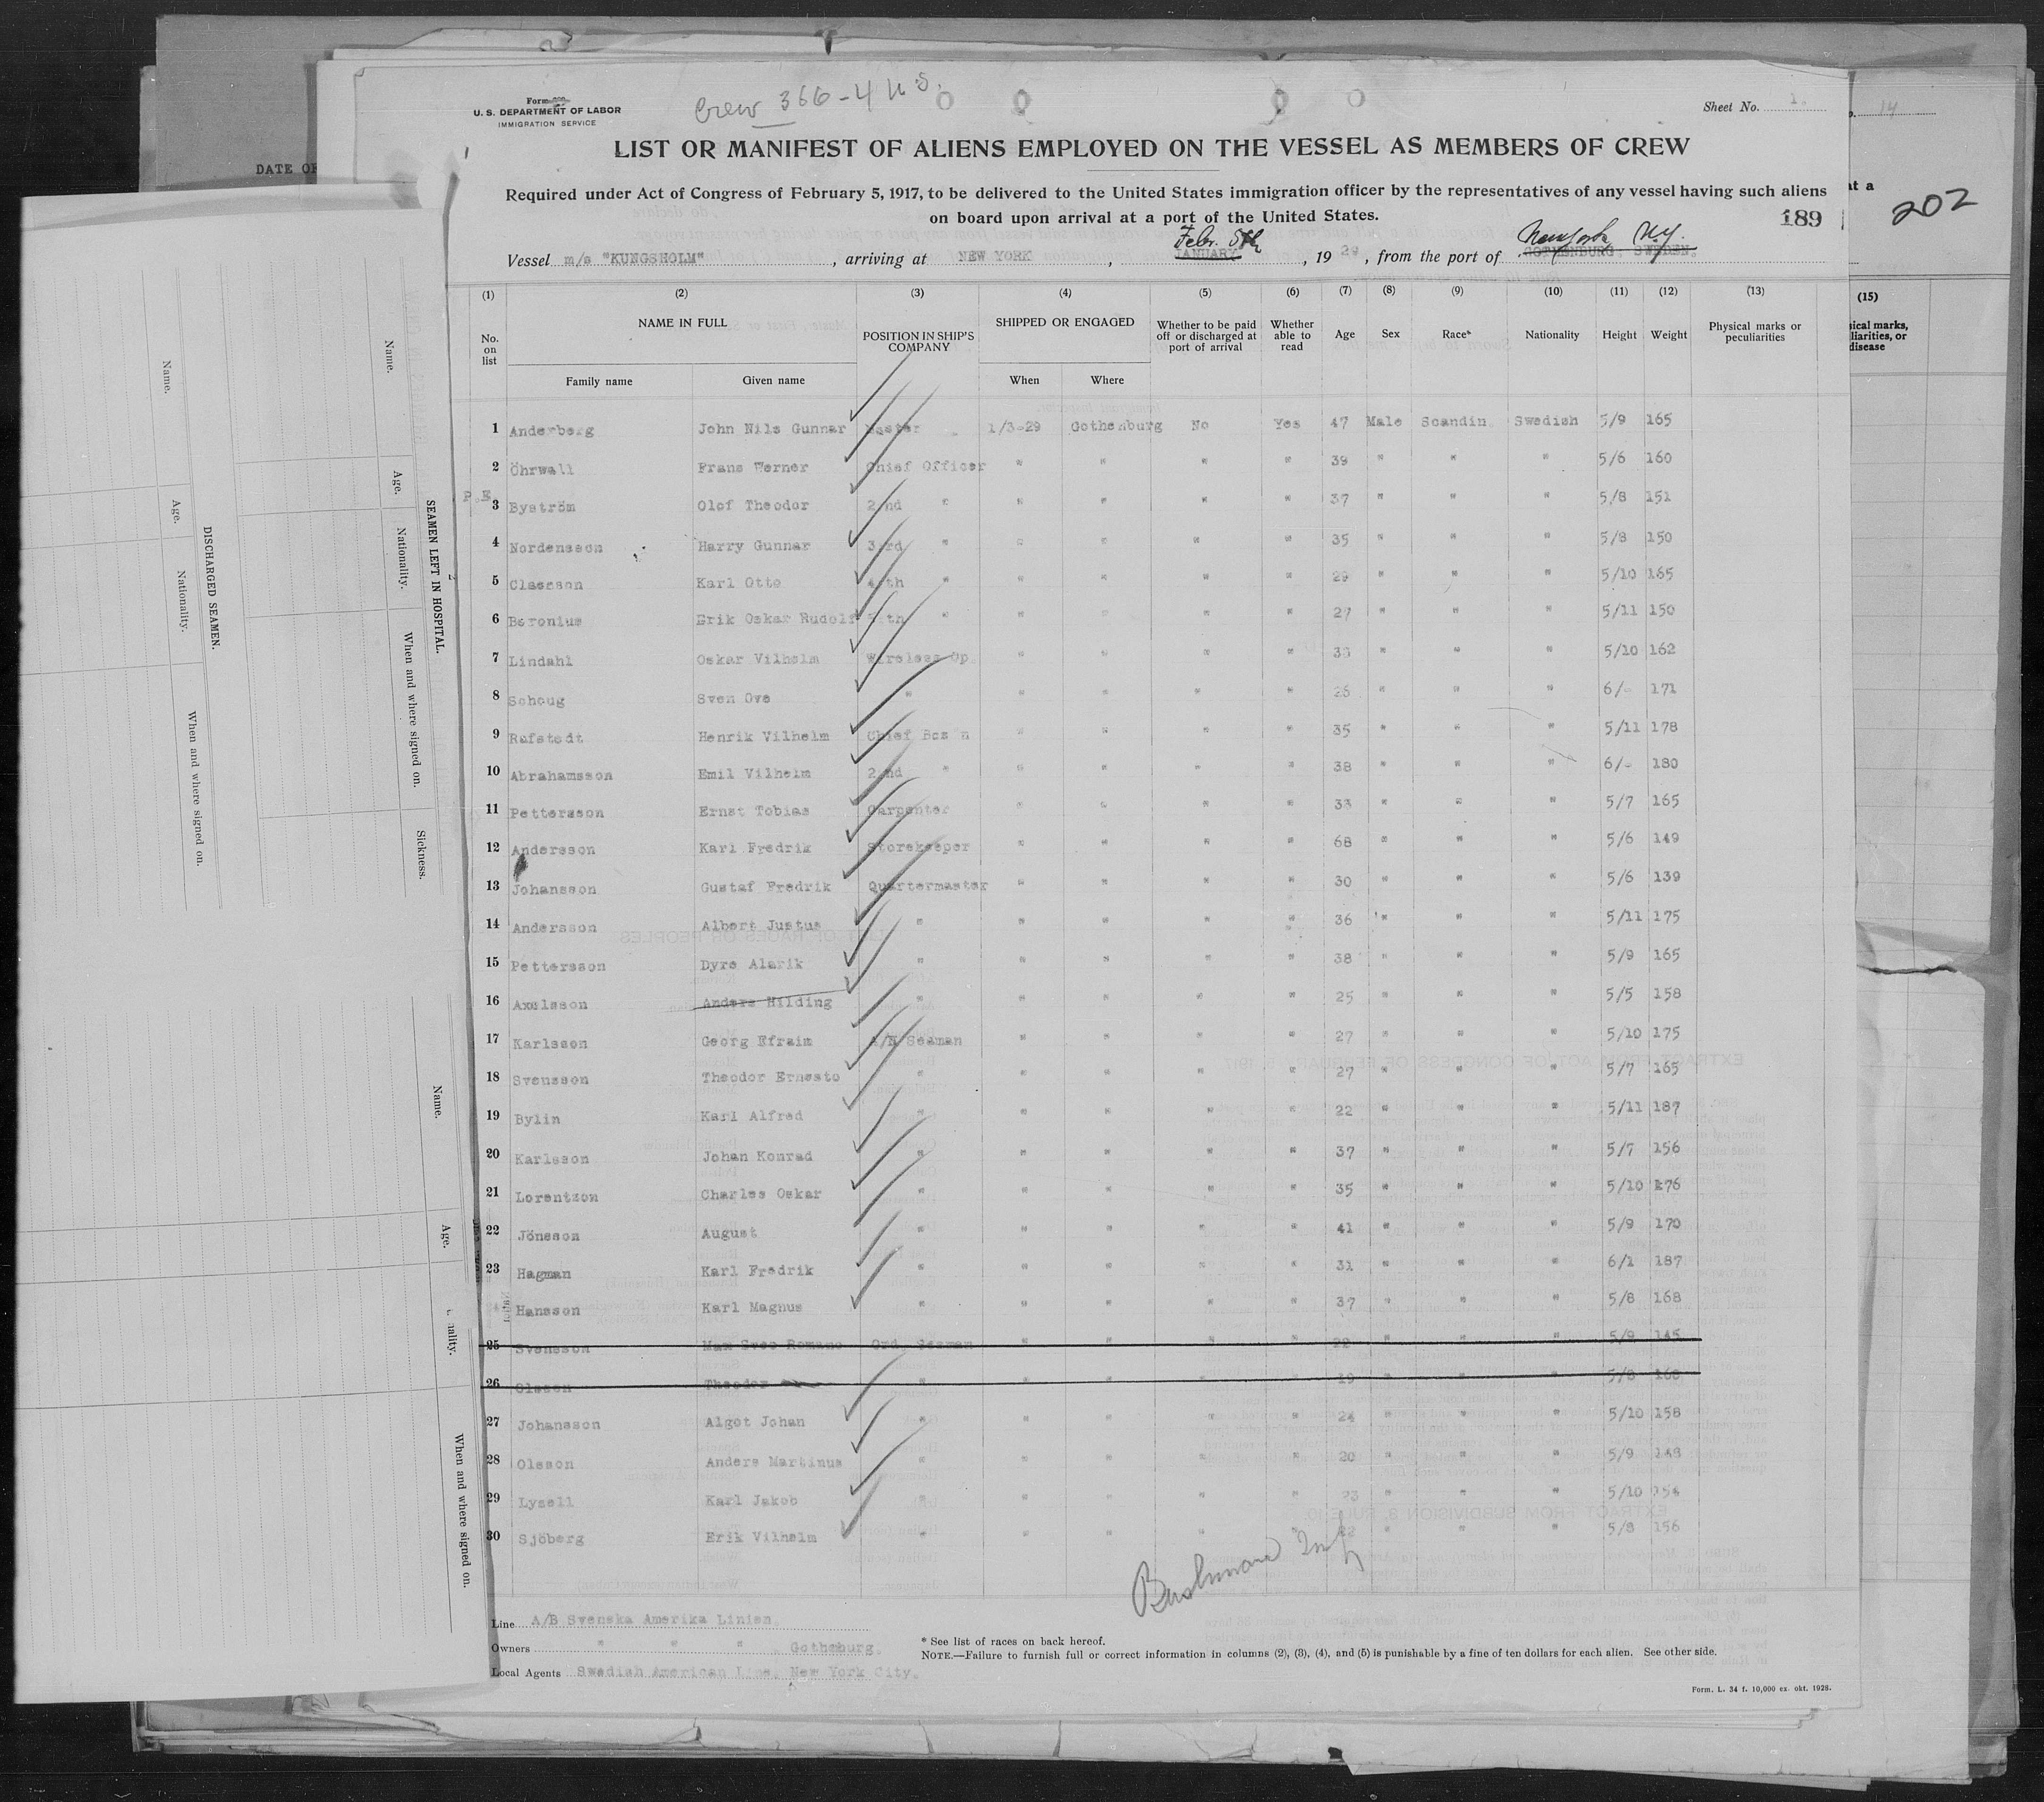 Crew 366-4 U.S.
Form
U. S. DEPARTMENT OF LABOR
IMMIGRATION SERVICE
Sheet No. 1.
14
DATE OF
LIST OR MANIFEST OF ALIENS EMPLOYED ON THE VESSEL AS MEMBERS OF CREW
Required under Act of Congress of February 5, 1917, to be delivered to the United States immigration officer by the representatives of any vessel having such aliens
on board upon arrival at a port of the United States.
189
at a
202
Febr. 5th New York N.Y.
Vessel m/s "KUNGSHOLM", arriving at NEW YORK, JANUARY, 1929, from the port of GOTHENBURG, SWEDEN.
(1) (2) (3) (4) (5) (6) (7) (8) (9) (10) (11) (12) (13) (15)
No. on list NAME IN FULL POSITION IN SHIP'S COMPANY SHIPPED OR ENGAGED Whether to be paid off or discharged at port of arrival Whether able to read Age Sex Race* Nationality Height Weight Physical marks or peculiarities
Family name Given name When Where
1 Anderberg John Nils Gunnar Master 1/3-29 Gothenburg No Yes 47 Male Scandin. Swedish 5/9 165
2 Öhrwall Frans Werner Chief Officer " " " " 39 " " " 5/6 160
P.E.
3 Byström Olof Theodor 2/nd " " " " " 37 " " " 5/8 151
4 Nordensson Harry Gunnar 3/rd " " " " " 35 " " " 5/8 150
5 Claesson Karl Otto 4/th " " " " " 29 " " " 5/10 165
6 Beronius Erik Oskar Rudolf 5/th " " " " " 27 " " " 5/11 150
7 Lindahl Oskar Vilhelm Wireless Op. " " " " 33 " " " 5/10 162
8 Schoug Sven Ove " " " " " 26 " " " 6/- 171
9 Rafstedt Henrik Vilhelm Chief Bos'n " " " " 35 " " " 5/11 178
10 Abrahamsson Emil Vilhelm 2/nd " " " " " 38 " " " 6/- 180
11 Pettersson Ernst Tobias Carpenter " " " " 33 " " " 5/7 165
12 Andersson Karl Fredrik Storekeeper " " " " 68 " " " 5/6 149
13 Johansson Gustaf Fredrik Quartermaster " " " " 30 " " " 5/6 139
14 Andersson Albert Justus " " " " " 36 " " " 5/11 175
15 Pettersson Dyre Alarik " " " " " 38 " " " 5/9 165
16 Axelsson Anders Hilding " " " " " 25 " " " 5/5 158
17 Karlsson Georg Efraim A/B Seaman " " " " 27 " " " 5/10 175
18 Svensson Theodor Ernesto " " " " " 27 " " " 5/7 165
19 Bylin Karl Alfred " " " " " 22 " " " 5/11 187
20 Karlsson Johan Konrad " " " " " 37 " " " 5/7 156
21 Lorentzon Charles Oskar " " " " " 35 " " " 5/10 176
22 Jönsson August " " " " " 41 " " " 5/9 170
23 Hagman Karl Fredrik " " " " " 31 " " " 6/1 187
Hansson Karl Magnus " " " " " 37 " " " 5/8 168
25 Svensson Romano Ord. Seaman " " " " 22 " " " 5/9 145
26 Olsson Theodor " " " " " 19 " " " 5/8 160
27 Johansson Algot Johan " " " " " 24 " " " 5/10 158
28 Olsson Anders Martinus " " " " " 20 " " " 5/9 148
29 Lysell Karl Jakob " " " " " 23 " " " 5/10 154
30 Sjöberg Erik Vilhelm " " " " " 22 " " " 5/8 156
Line A/B Svenska Amerika Linien.
Owners " " " , Gothburg.
Local Agents Swedish American Line, New York City.
* See list of races on back hereof.
NOTE.—Failure to furnish full or correct information in columns (2), (3), (4), and (5) is punishable by a fine of ten dollars for each alien. See other side.
Form. L. 34 f. 10,000 ex. okt. 1928.
SEAMEN LEFT IN HOSPITAL.
Name. Age. Nationality. When and where signed on. Sickness.
DISCHARGED SEAMEN.
Name. Age. Nationality. When and where signed on.
Name. Age. When and where signed on.